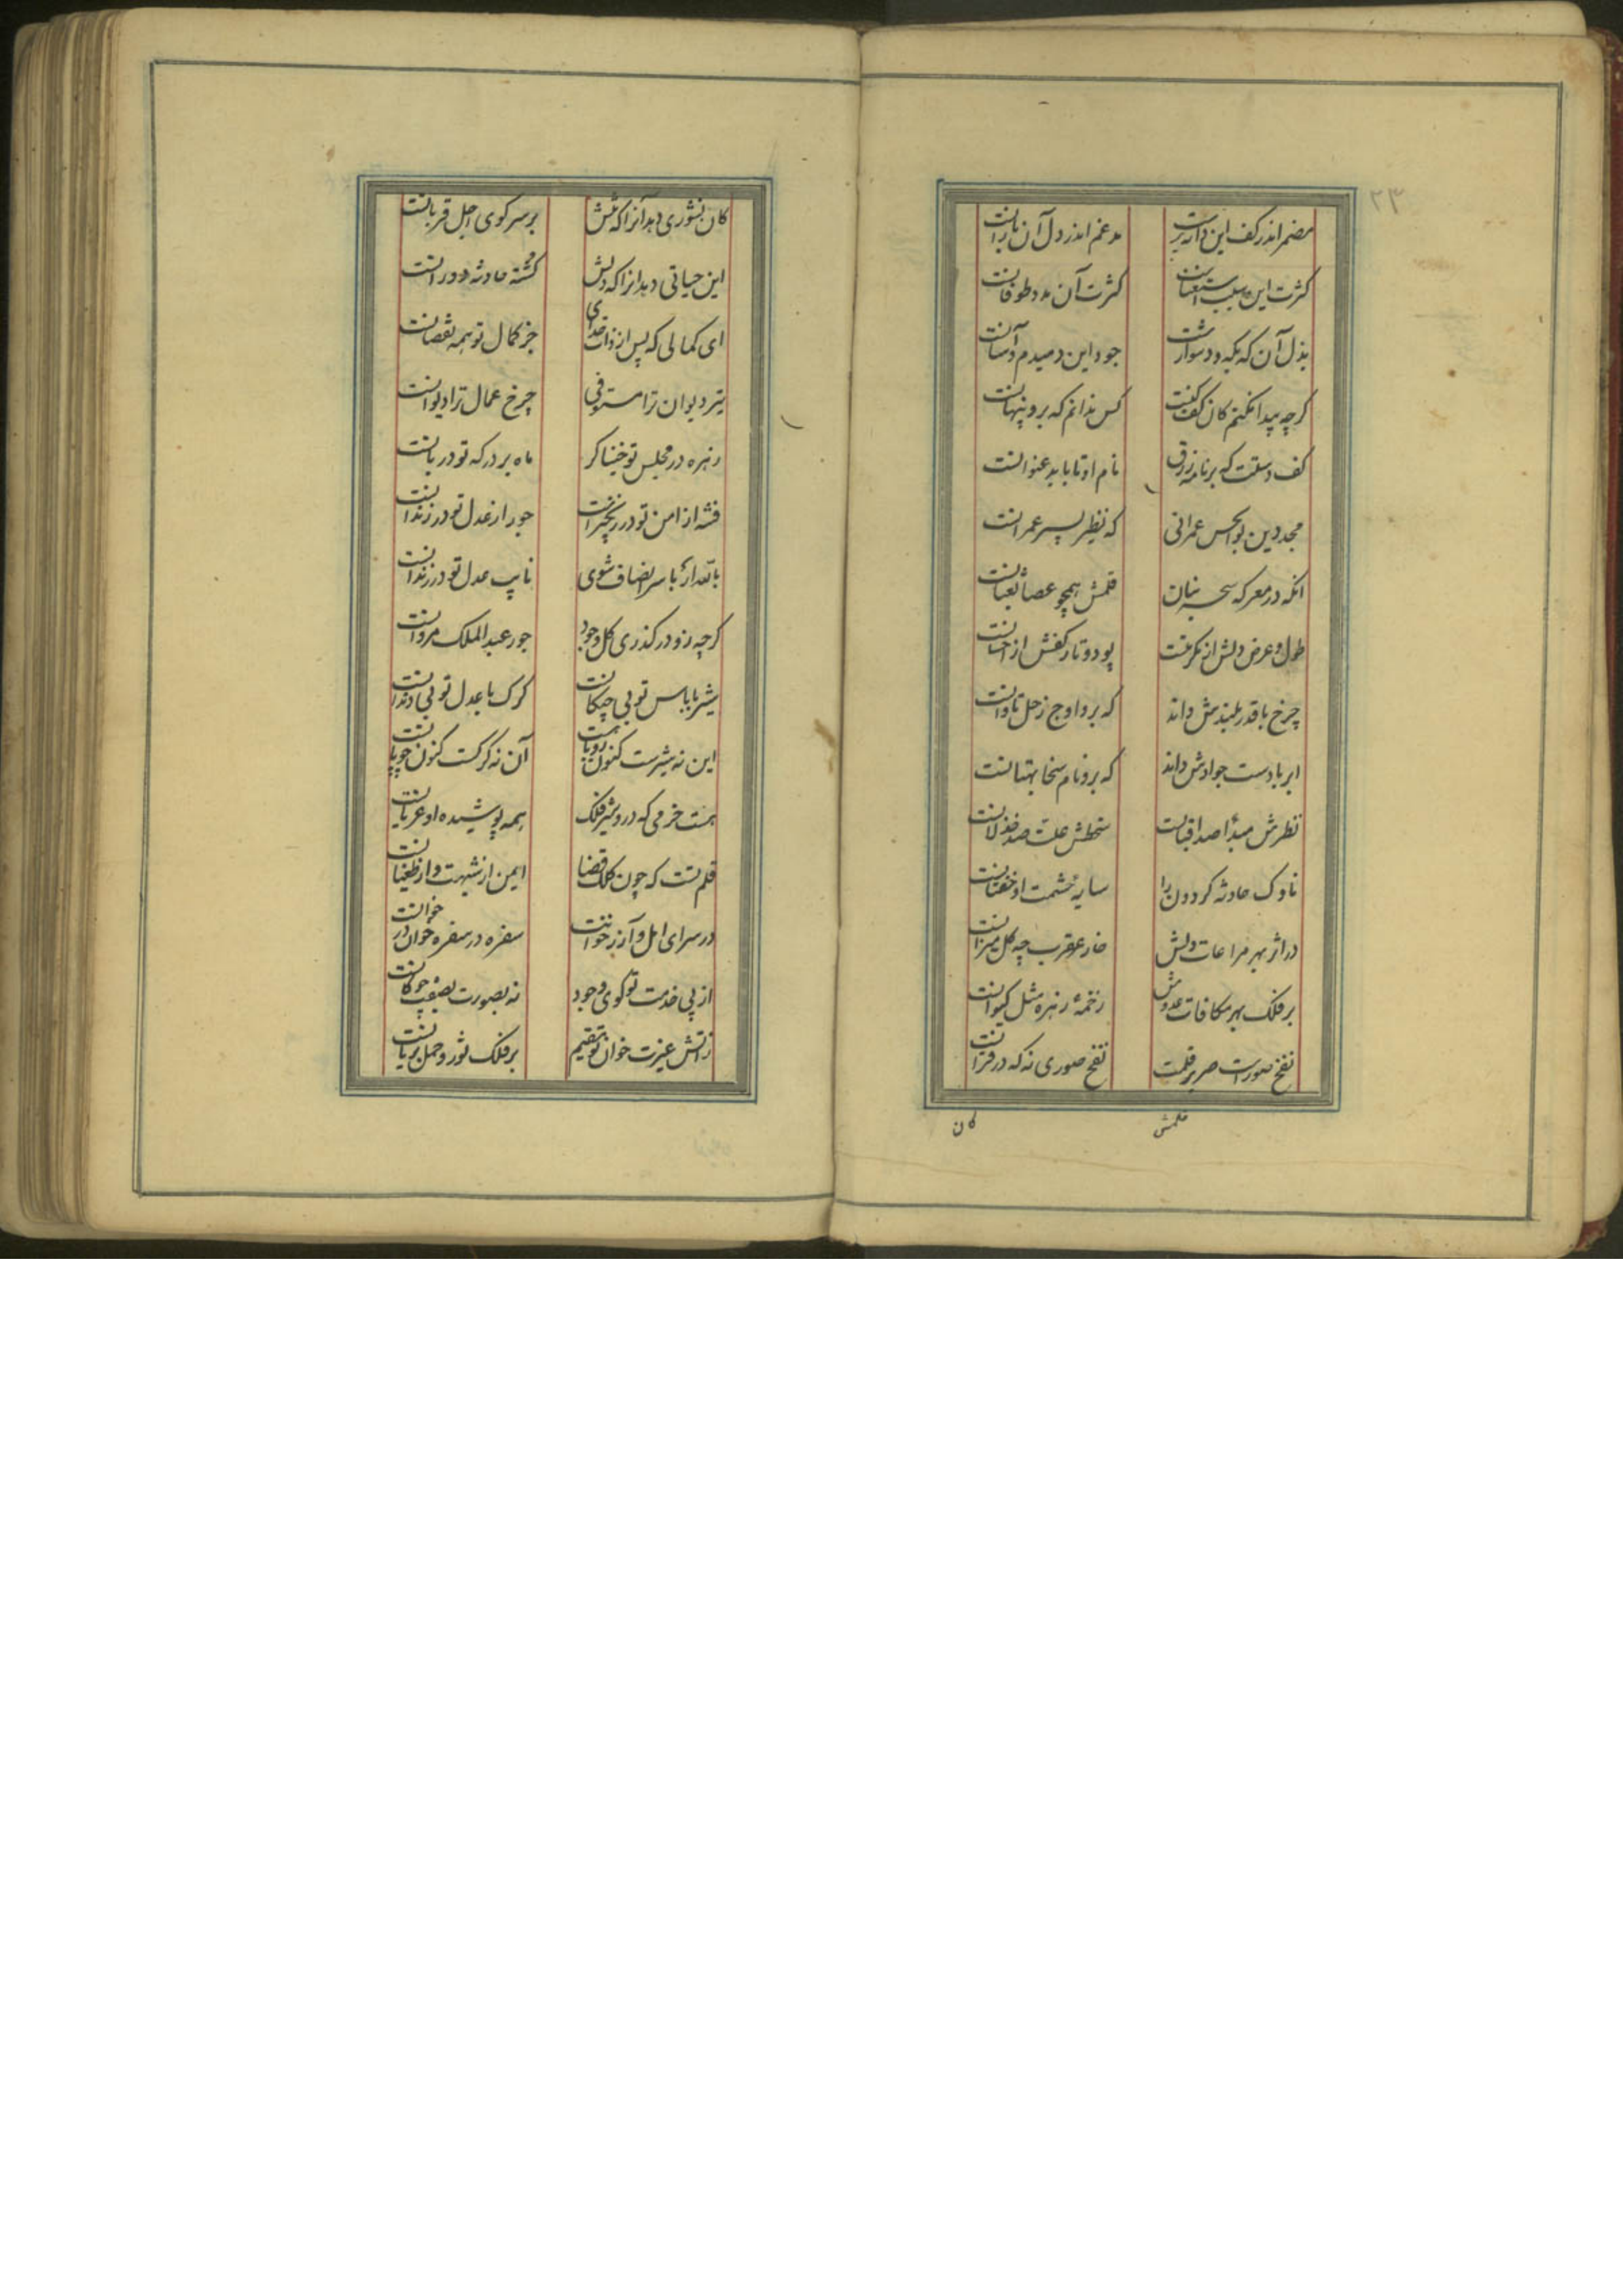 ۲۳
مضمر اندر کف این دانه برست
مدغم اندر دل آن بارانست
کثرت این سبب استغناست
کثرت آن مدد طوفانست
بذل آن گه بگه و دشوارست
جود این دمبدم و آسانست
گرچه پیدا نکنم کان کف کیست
کس ندانم که برو پنهانست
کف دستیست که بر نامه رزق
نام او تا بابد عنوانست
مجد دین بوالحسن عمرانی
که نظیر پسر عمرانست
آنکه در معرکه سحر بیان
قلمش همچو عصا ثعبانست
طول و عرض دلش از مکرمتست
پود و تار کفش از احسانست
چرخ با قدر بلندش داند
که برو اوج زحل تاوانست
ابر با دست جوادش داند
که برو نام سخا بهتانست
نظرش مبدأ صد اقبالست
سخطش علت صد خذلانست
ناوک حادثه گردون را
سایه حشمت او خفتانست
در اثر بهر مراعات ولیش
خار عقرب چو گل میزانست
بر فلک بهر مکافات عدوش
زخمهٔ زهره مثل کیوانست
نفخ صورست صریر قلمت
نفخ صوری نه که در قرآنست
قلمش
کان
کان نشوری دهد آنرا که تنش
بر سر کوی اجل قربانست
این حیاتی دهد آنرا که دلش
کشته حادثه دورانست
ای کمالی که پس از ذات خدای
جز کمال تو همه نقصانست
تیر دیوان ترا مستوفی
چرخ عمال ترا دیوانست
زهره در مجلس تو خنیاگر
ماه بر درگه تو دربانست
فتنه از امن تو در زنجیرست
جور از عدل تو در زندانست
با سر انصاف شوی
نایب عدل تو در زندانست
گرچه زو درگذری کل وجود
جور عبدالملک مروانست
شیر با باس تو بی چنگالست
گرگ با عدل تو بی دندانست
این نه شیرست کنون روباهست
آن نه گرگست کنون چوپانست
هست خرمی که در و شیر فلک
همه پوشیده و او عریانست
قلم تست که چون کلک قضا
ایمن از شبهت و از طغیانست
در سرای امل و آز ز خوانت
سفره در سفره و خوان در خوانست
از پی خدمت تو گوی وجود
نه بصورت بصفت چوگانست
ز آتش غیرت خوان تو مقیم
بر فلک ثور و حمل بریانست